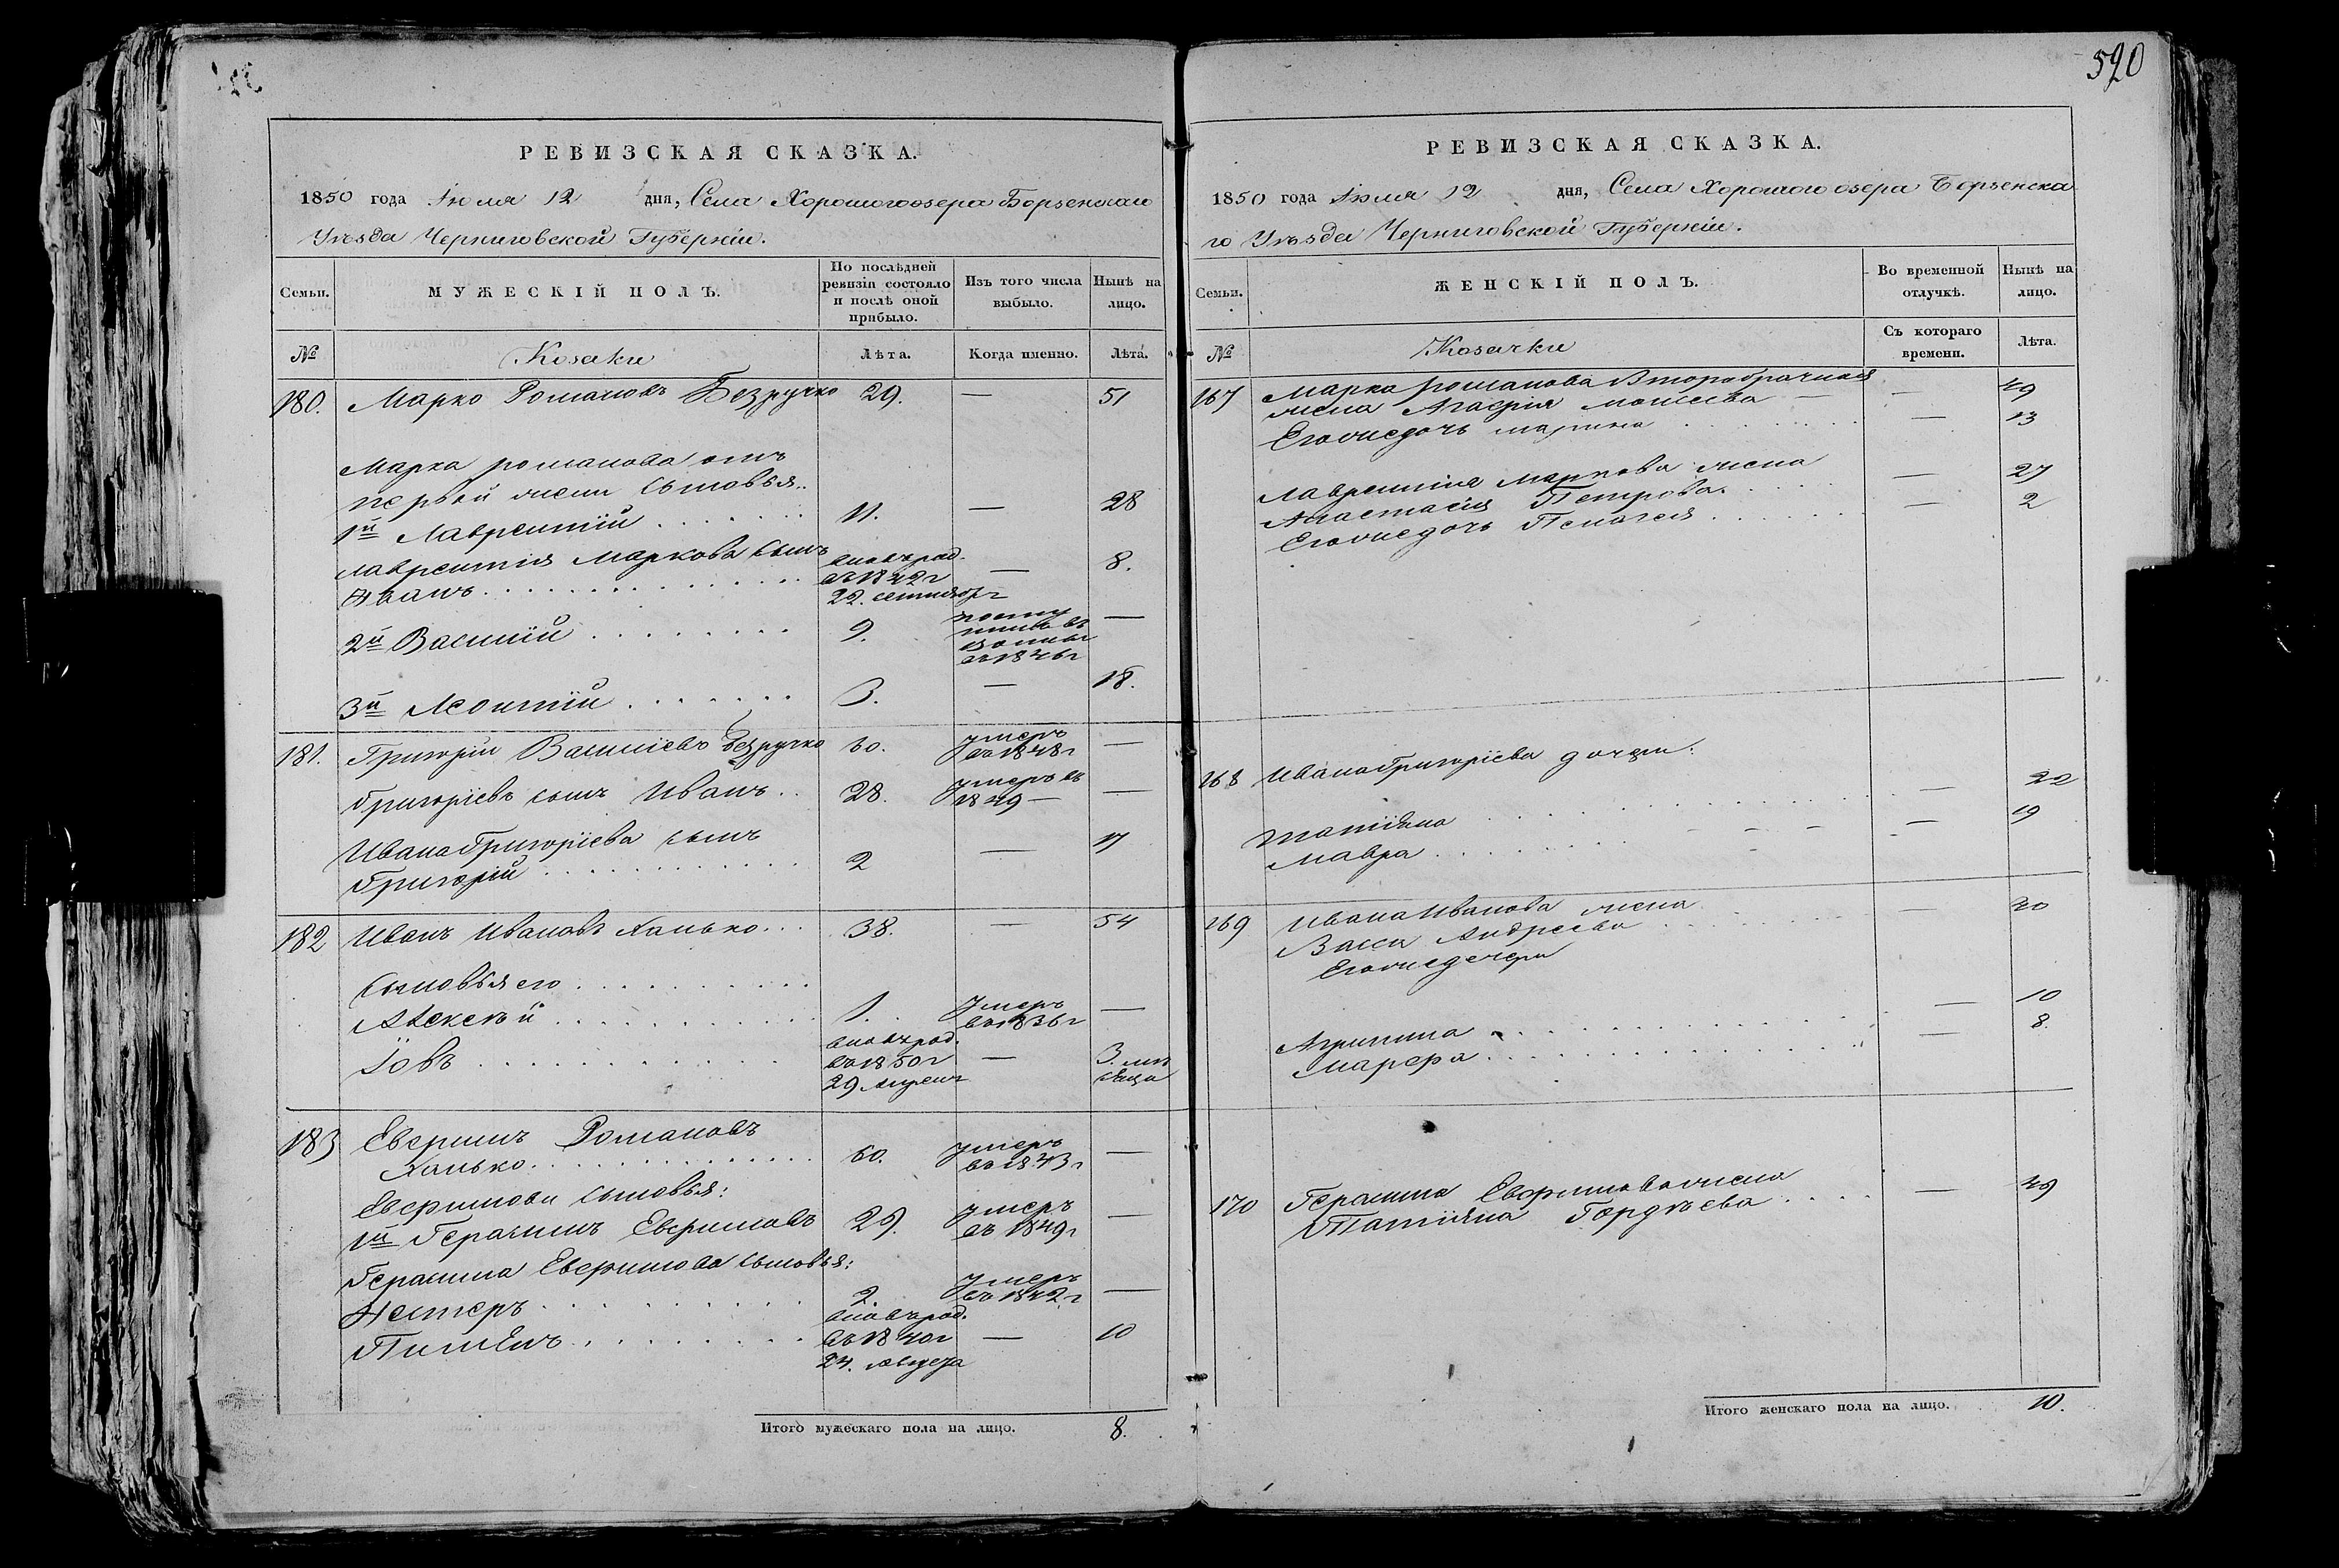 РЕВИЗСКАЯ СКАЗКА.
1850 года Июля 12 дня, Села Хорошогоозера Борзенскаго
Уѣзда Черниговской Губерніи.
Семьи.
МУЖЕСКІЙ ПОЛЪ.
По послѣдней ревизіи состояло и послѣ оной прибыло.
Изъ того числа выбыло.
Нынѣ на лицо.
№
Козаки
Лѣта.
Когда именно.
Лѣта.
180. Марко Романовъ Безручко 29. — 51
Марка романова отъ
первой жены сыновья..
1й Лаврентій 11. — 28
Лаврентія Маркова сынъ
Иванъ вновърод. въ 1842г 22. сентября — 8.
2й Василій 9. въ 1846г —
3й Леонтій 3. — 18.
181. Григорій Василіевъ Безручко 60. умеръ въ 1848г —
Григоріевъ сынъ Иванъ.. 28. умеръ въ 1849 — —
Ивана Григоріева сынъ
Григорій 2 — 17
182 Иванъ Ивановъ Ханько... 38. — 54
Сыновья его
Алексѣй 1. умеръ въ 1836г —
Іовъ вновърод. въ 1850г 29 Апреля — 3. мѣсяца
183 Евфимъ Романовъ
Ханько 60. умеръ въ 1843г —
Евфимови сыновья:
1й Герасимъ Евфимовъ 29. умеръ въ 1849г —
Герасима Евфимова сыновья:
Нестеръ 2. умеръ въ 1842.г —
Пименъ вновърод. въ 1840г 24. августа — 10
Итого мужескаго пола на лицо. 8.
520
РЕВИЗСКАЯ СКАЗКА.
1850 года Июля 12 дня, Села Хорошого озера Борзенска
го Уѣзда Черниговской Губерніи.
Семьи.
ЖЕНСКІЙ ПОЛЪ.
Во временной отлучкѣ.
Нынѣ на лицо.
№
Козачки
Съ котораго времени.
Лѣта.
167 Марка романова Второбрачная
жена Агафія Моисѣева — — 49
Егожедочь марина — 13
Лаврентія Маркова жена
Анастасія Петрова. — 27
Егожедочь Пелагея — 2
168 Ивана Григоріева дочери:
Татіяна — 22
Мавра — 19
169 Ивана Иванова жена
Васса Андреева — 40
Егожедочери
Агрипина — 10
Марфа — 8.
170 Герасима Евфимова жена
Татіяна Гордѣева — 49
Итого женскаго пола на лицо. 10.